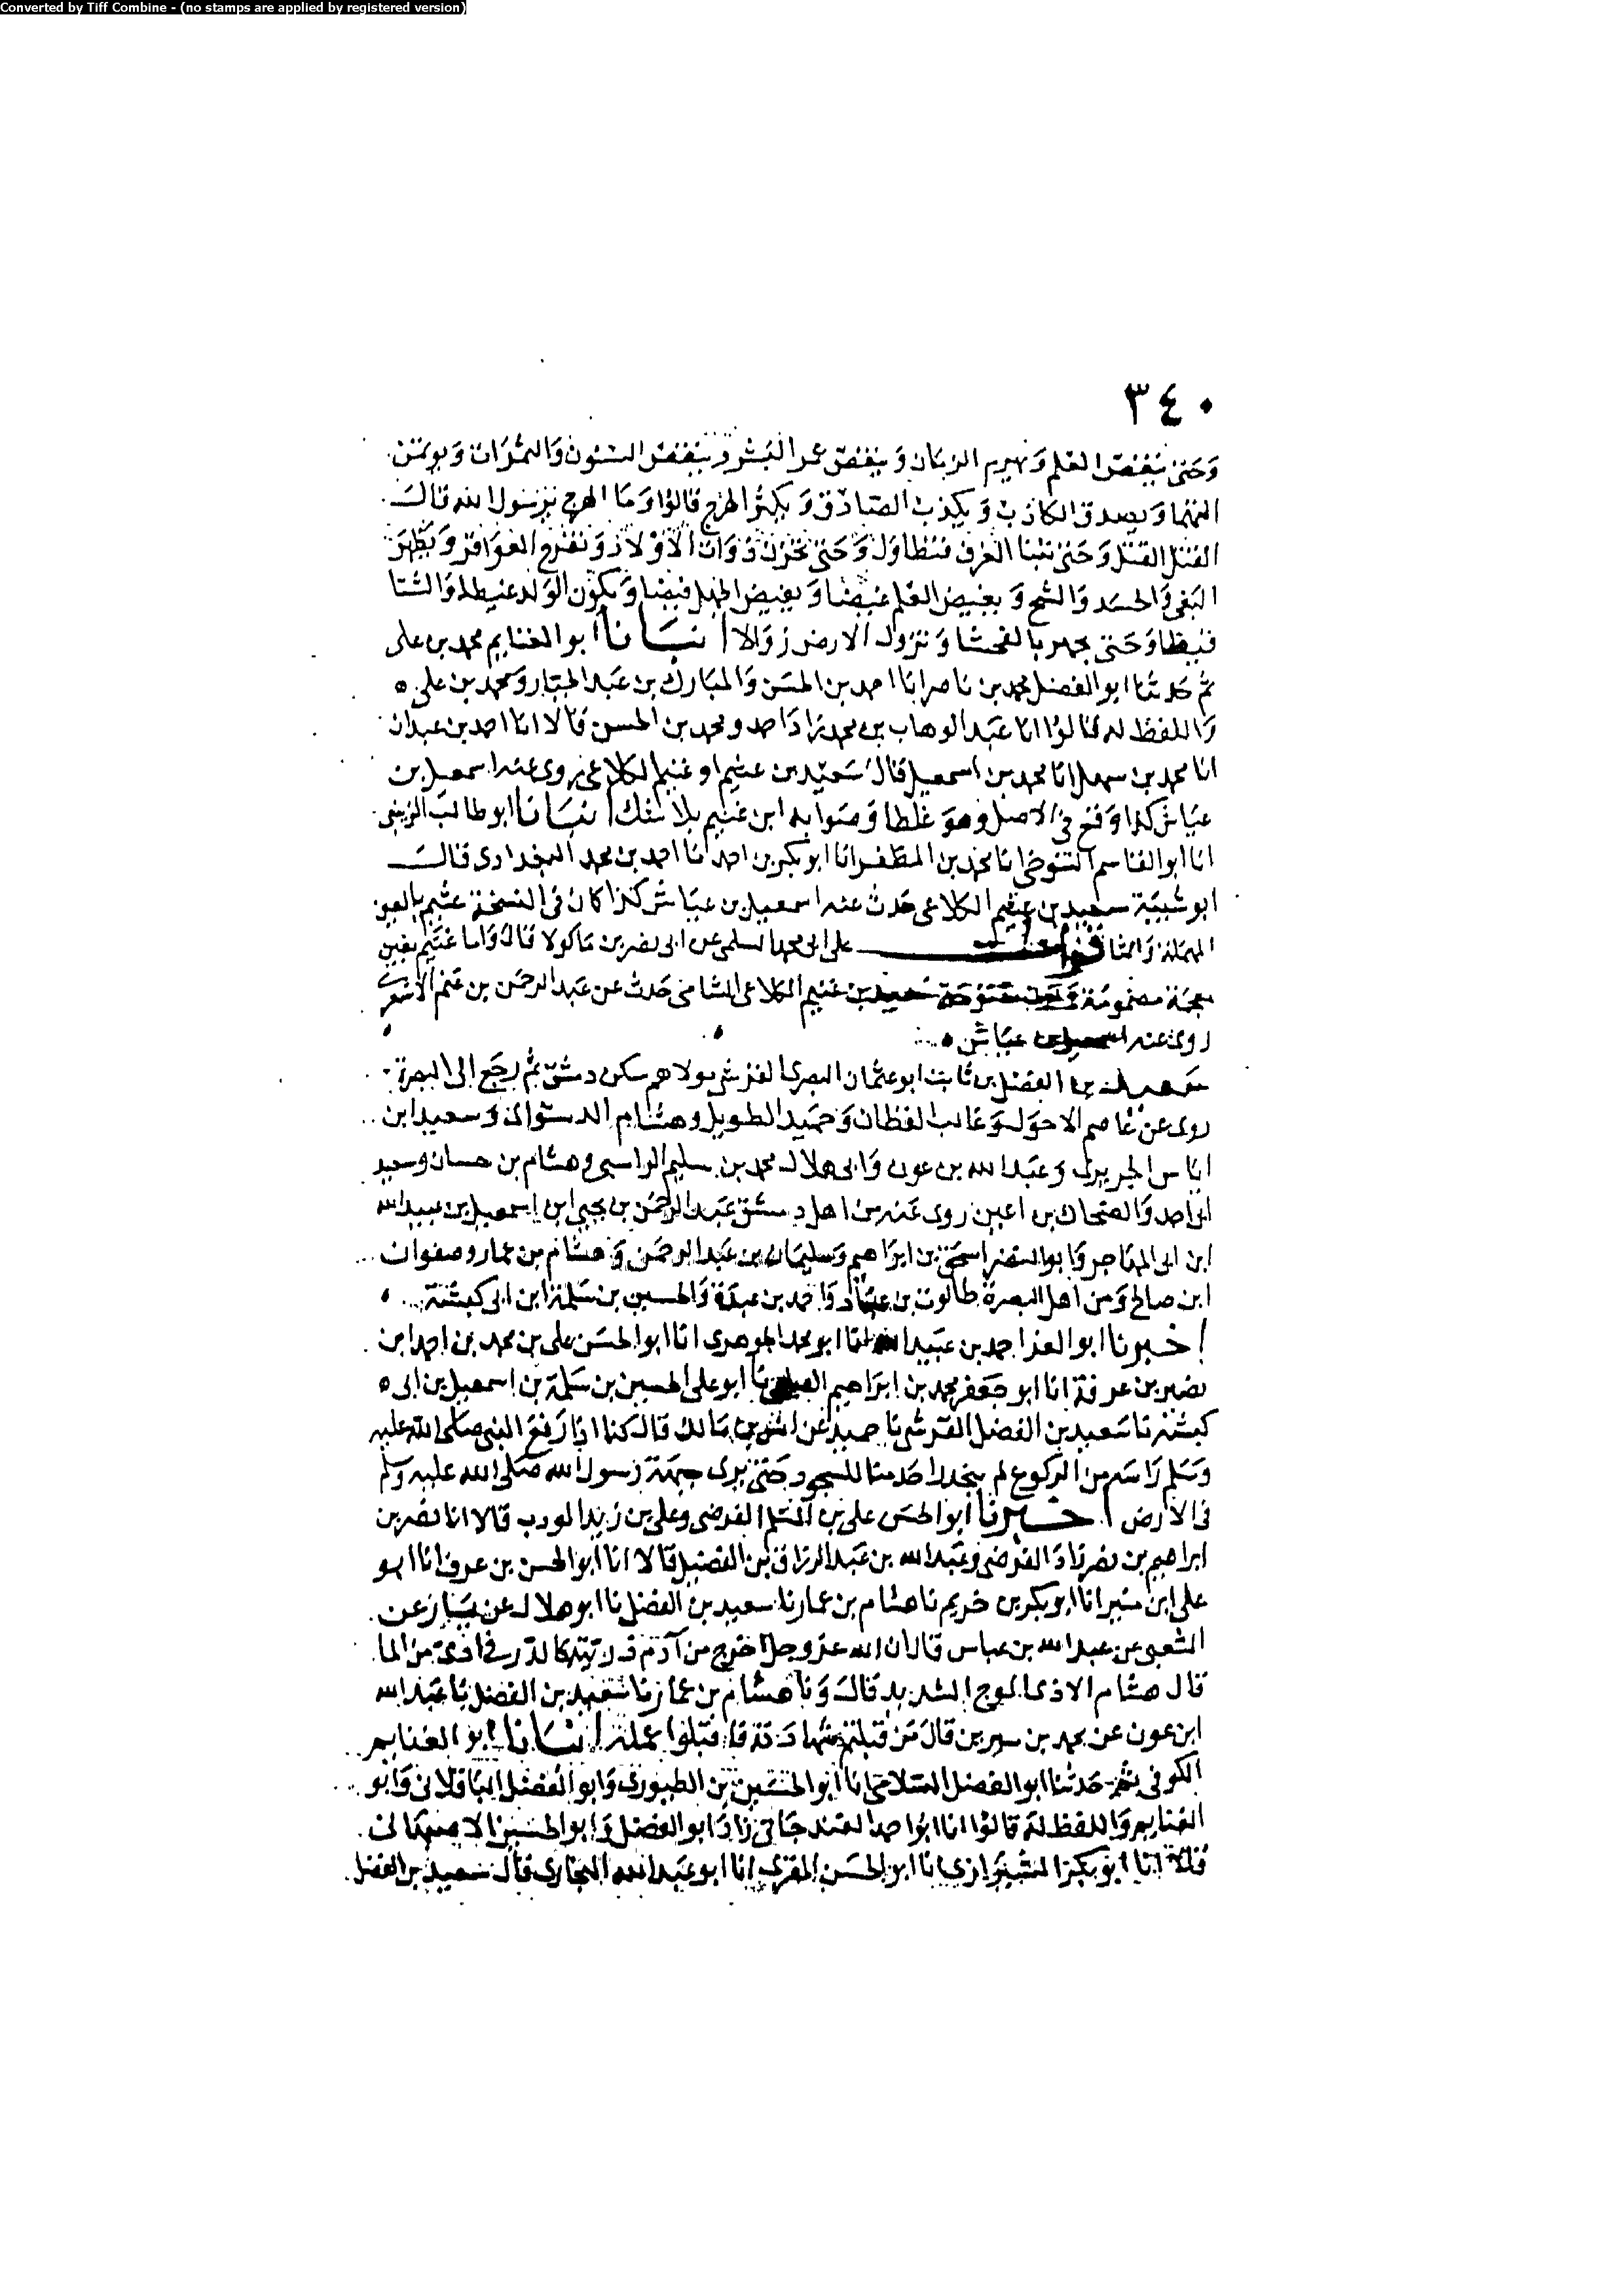 Converted by Tiff Combine - (no stamps are applied by registered version)
٣٤٠
وَحَتى ينقص العلم وَيهرم الزمَان وَ ينقص عمر البَشر وَ ينقص السنون وَالثمرَات وَ يوتمن
التهما وَ يصدق الكاذب وَ يكذب الصَادق وَ يكثر الهرج قالوا وَمَا الهرج يرسول الله قال
القتل القتل وَ حَتى تبنا الغرف فتطاول وَ حَتى تحزن ذوات الاوْلاد وَ تفرح العَواقر وَ يظهر
البغى وَالحسد وَالشح وَ يغيض العلم غيضا وَ يفيض الجهل فيضا وَ يكون الولد غيظا وَالشتا
قيظا وَحَتى يجهر بالفحشا وَ تزول الارض زوَالا انبَانا ابو الغنايم محمد بن على
ثم حَدثنا ابو الفضل محمد بن ناصر انا احمد بن الحسَن وَالمبَارك بن عَبد الجبَار وَمحمد بن على ه
وَاللفظ له قالوا انا عَبد الوهاب بن محمد زادَ احمد و محمد بن الحسن قالا انا احمد بن عبدان
انا محمد بن سهل انا محمد بن اسمعيل قال سَعيد بن عثيم او غنيم الكلاعى روى عنه اسمعيل بن
عيَاش كذا وَقع في الاصل وهوَ غلطا وَصَوابه ابن غنيم بلا شك انبَانا ابو طالب الزينبى
انا ابو القاسم التنوخى انا محمد بن المظفر انا ابو بكر بن احمد انا احمد بن محمد البغدادى قال
ابو شيبَة سعيد بن عثيم الكلاعى حَدث عنه اسمعيل بن عيَاش كذا كان فى النسخة عثيم بالعين
المهملة وَالثا قرات على ابى محمد السلمى عن ابى نصر بن مَاكولا قال وَاما غنيم بغين
معجمة مضمومَة وَ مفتوحَة سعيد بن غنيم الكلاعى الشامى حَدث عن عَبد الرحمَن بن غنم الاشعرى
روى عنه اسمعيل بن عيَاش ه
سَعيد بن الفضل بن ثابت ابو عثمان البصرى القرشى مولاهم سكن دمشق ثم رجَع الى البصرة
روى عن عَاصم الاحوَل وَغالب القطان وَحمَيد الطويل وهشَام الدستوائى وَسعيد ابن
ايَاس الجريرى وَعبَد الله بن عون وَابى هلال محمد بن سليم الراسبى وهشام بن حسان وسعيد
ابى احمد وَالضحاك بن اعين روى عَنه من اهل دمشق عَبد الرحمَن بن يحيى ابن اسمعيل بن عبيد الله
ابن ابى المهَاجر وَابو النضر اسحَق بن ابرَاهيم وَسليمَان بن عَبد الرحمَن وَ هشَام بن عمار وصفوان
ابن صالح وَمن اهل البصرة طالوت بن عبَاد وَاحمد بن عبدَة وَالحسين بن سَلمة ابن ابى كبشَة
اخبرنا ابو العز احمد بن عبَيد الله انا ابو محمد الجوهرى انا ابو الحسَن على بن محمد بن احمد ابن
نصير بن عرفة انا ابو جَعفر محمد بن ابرَاهيم نا ابو على الحسين بن سَلمة بن اسمعيل بن ابى ه
كبشَة نا سَعيد بن الفضل القرشى نا حميد عَن انس بن مَالك قال كنا اذا رَفعَ النبى صلى الله عليه
وَسَلم رَاسَه من الركوع لم ينحدر احَد منا للسجود حَتى يرى جبهَة رَسول الله صَلى الله عليه وَسلم
فى الارض اخبرنا ابو الحسَن على بن المسَلم الفرضى وعلى بن زَيد المودب قالا انا نصر بن
ابراهيم بن نصر زادَ الفرضى وعبَد الله بن عَبد الرزاق بن الفضيل قالا انا ابو الحسن بن عوف انا ابو
على ابن منير انا ابو بكر بن خريم نا هشام بن عمار نا سعيد بن الفضل نا ابو هلال عن عن
الشعبى عن عبد الله بن عباس قال ان الله عز وجل اخرج من آدم ذريته كالذر فى اذى من الما
قال هشام الاذى الموج الشديد قال وَنا هشام بن عمار نا سَعيد بن الفضل نا عَبد الله
ابن عون عن محمد بن سيرين قال مَن قبلتم شهادَته فاقبلوا عمله انبَانا ابو الغنايم
الكوفى ثم حَدثنا ابو الفضل السَلامى انا ابو الحسَين بن الطيورى وَابو الفضل البَاقلانى وَابو
الغنايم وَاللفظ له قالوا انا ابو احمد الغندجَانى زادَ ابو الفضل وَابو الحسَين الاصبهَانى
قالا انا ابو بكر الشيرَازى انا ابو الحسَن المقرى انا ابو عَبد الله البخارى قال سَعيد بن الفضل